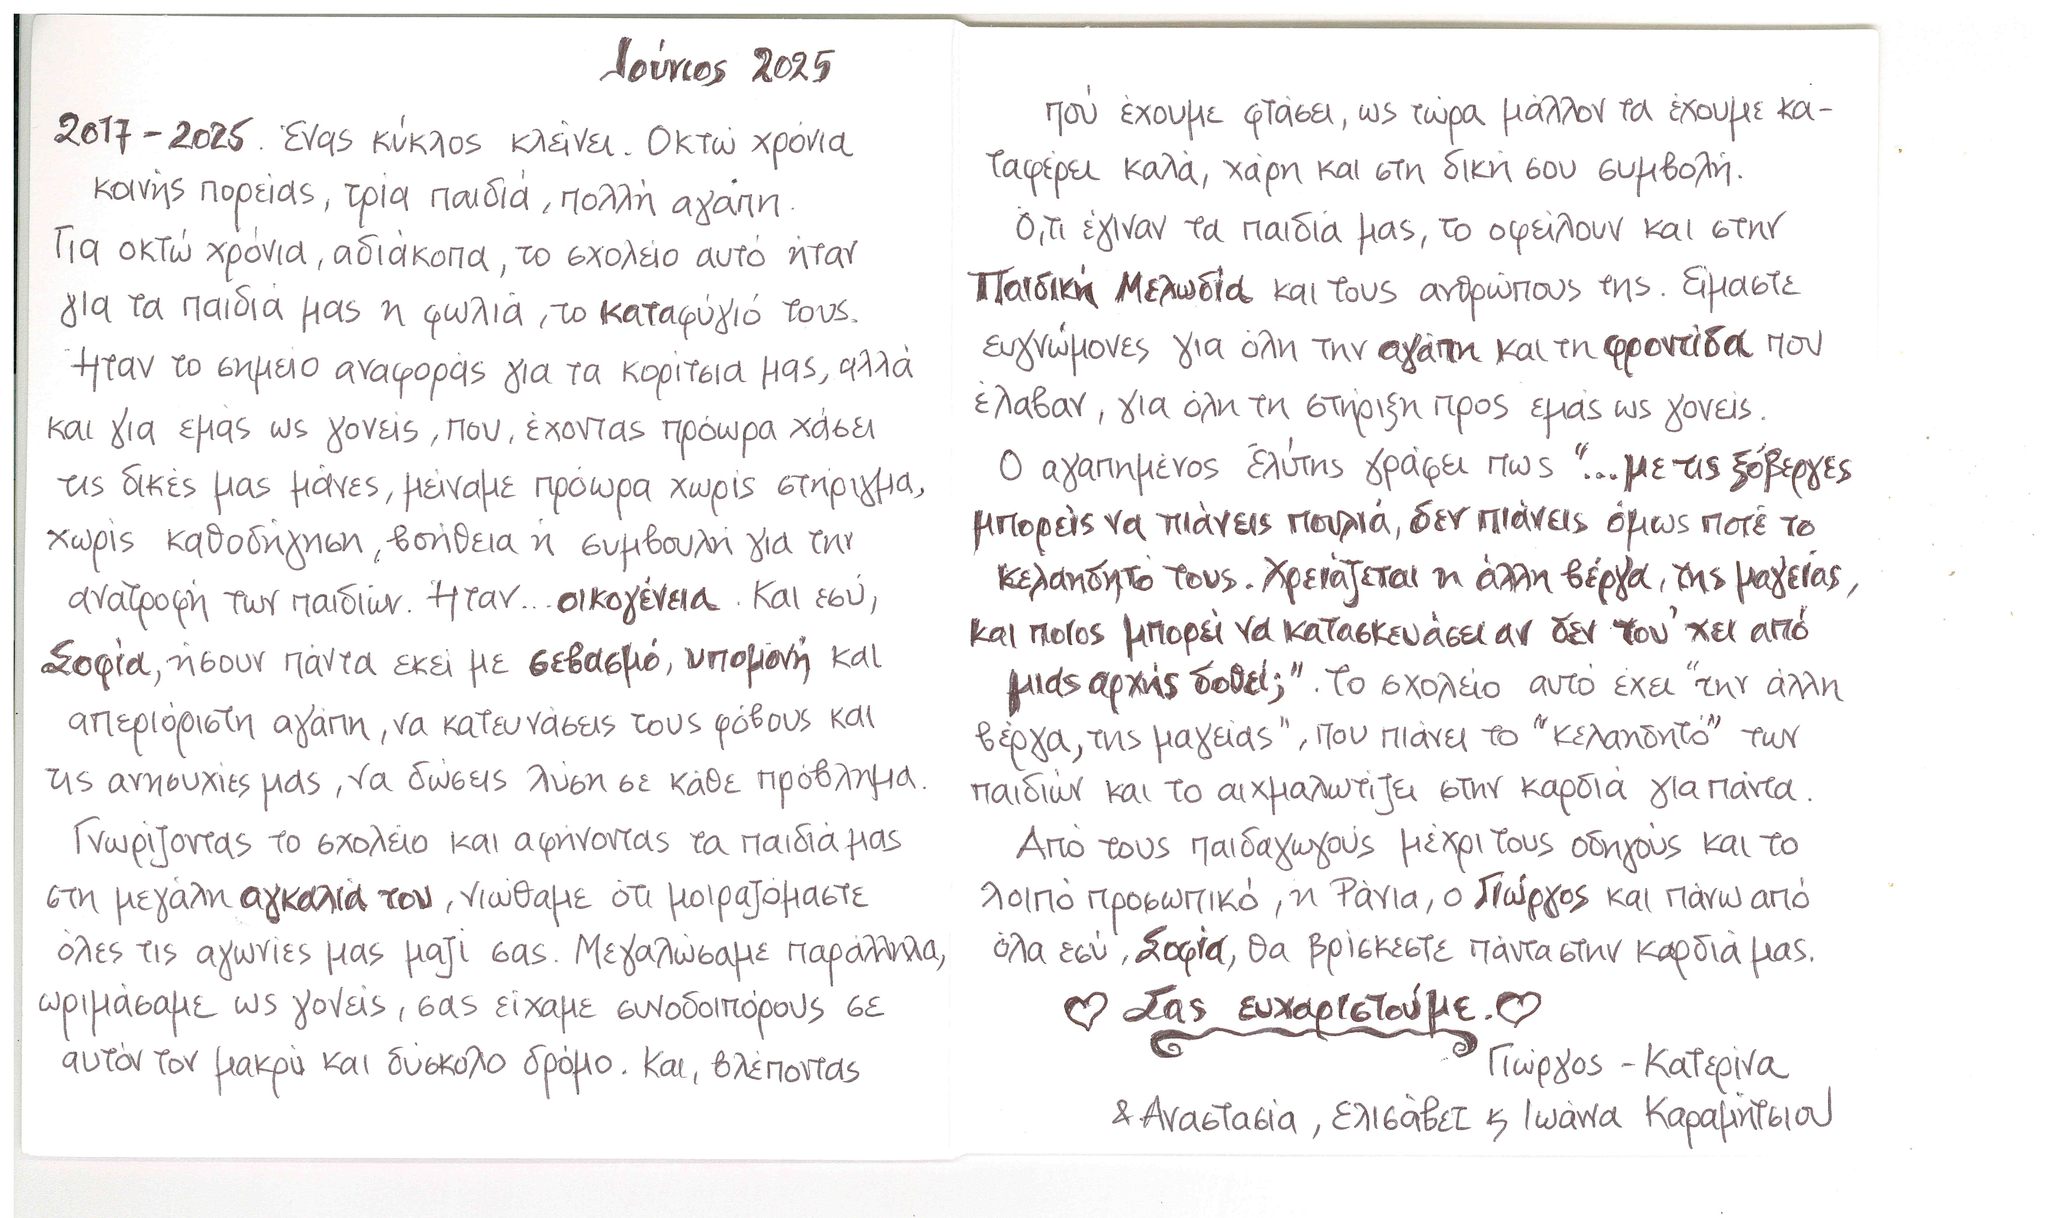 Ιούνιος 2025
2017 – 2025. Ένας κύκλος κλείνει. Οκτώ χρόνια
κοινής πορείας, τρία παιδιά, πολλή αγάπη.
Για οκτώ χρόνια, αδιάκοπα, το σχολείο αυτό ήταν
για τα παιδιά μας η φωλιά, το καταφύγιό τους.
Ήταν το σημείο αναφοράς για τα κορίτσια μας, αλλά
και για εμάς ως γονείς, που, έχοντας πρόωρα χάσει
τις δικές μας μάνες, μείναμε πρόωρα χωρίς στήριγμα,
χωρίς καθοδήγηση, βοήθεια ή συμβουλή για την
ανατροφή των παιδιών. Ήταν... οικογένεια. Και εσύ,
Σοφία, ήσουν πάντα εκεί με σεβασμό, υπομονή και
απεριόριστη αγάπη, να κατευνάσεις τους φόβους και
τις ανησυχίες μας, να δώσεις λύση σε κάθε πρόβλημα.
Γνωρίζοντας το σχολείο και αφήνοντας τα παιδιά μας
στη μεγάλη αγκαλιά του, νιώθαμε ότι μοιραζόμαστε
όλες τις αγωνίες μας μαζί σας. Μεγαλώσαμε παράλληλα,
ωριμάσαμε ως γονείς, σας είχαμε συνοδοιπόρους σε
αυτόν τον μακρύ και δύσκολο δρόμο. Και, βλέποντας
πού έχουμε φτάσει, ως τώρα μάλλον τα έχουμε κα-
ταφέρει καλά, χάρη και στη δική σου συμβολή.
Ό,τι έγιναν τα παιδιά μας, το οφείλουν και στην
Παιδική Μελωδία και τους ανθρώπους της. Είμαστε
ευγνώμονες για όλη την αγάπη και τη φροντίδα που
έλαβαν, για όλη τη στήριξη προς εμάς ως γονείς.
Ο αγαπημένος Ελύτης γράφει πως "...με τις ξόβεργες
μπορείς να πιάνεις πουλιά, δεν πιάνεις όμως ποτέ το
κελαηδητό τους. Χρειάζεται η άλλη βέργα, της μαγείας,
και ποιος μπορεί να κατασκευάσει αν δεν του 'χει από
μιας αρχής δοθεί;". Το σχολείο αυτό έχει "την άλλη
βέργα, της μαγείας", που πιάνει το "κελαηδητό" των
παιδιών και το αιχμαλωτίζει στην καρδιά για πάντα.
Από τους παιδαγωγούς μέχρι τους οδηγούς και το
λοιπό προσωπικό, η Ράνια, ο Γιώργος και πάνω από
όλα εσύ, Σοφία, θα βρίσκεστε πάντα στην καρδιά μας.
♡ Σας ευχαριστούμε. ♡
Γιώργος – Κατερίνα
& Αναστασία, Ελισάβετ ϗ Ιωάννα Καραμήτσιου